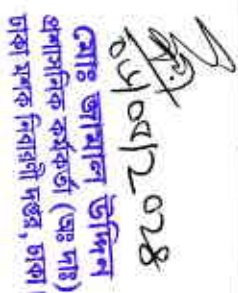 ০৮/০৫/২০২৪
মোঃ জামাল উদ্দিন
প্রশাসনিক কর্মকর্তা (অঃ দাঃ)
ঢাকা মশক নিবারণী দপ্তর, ঢাকা।